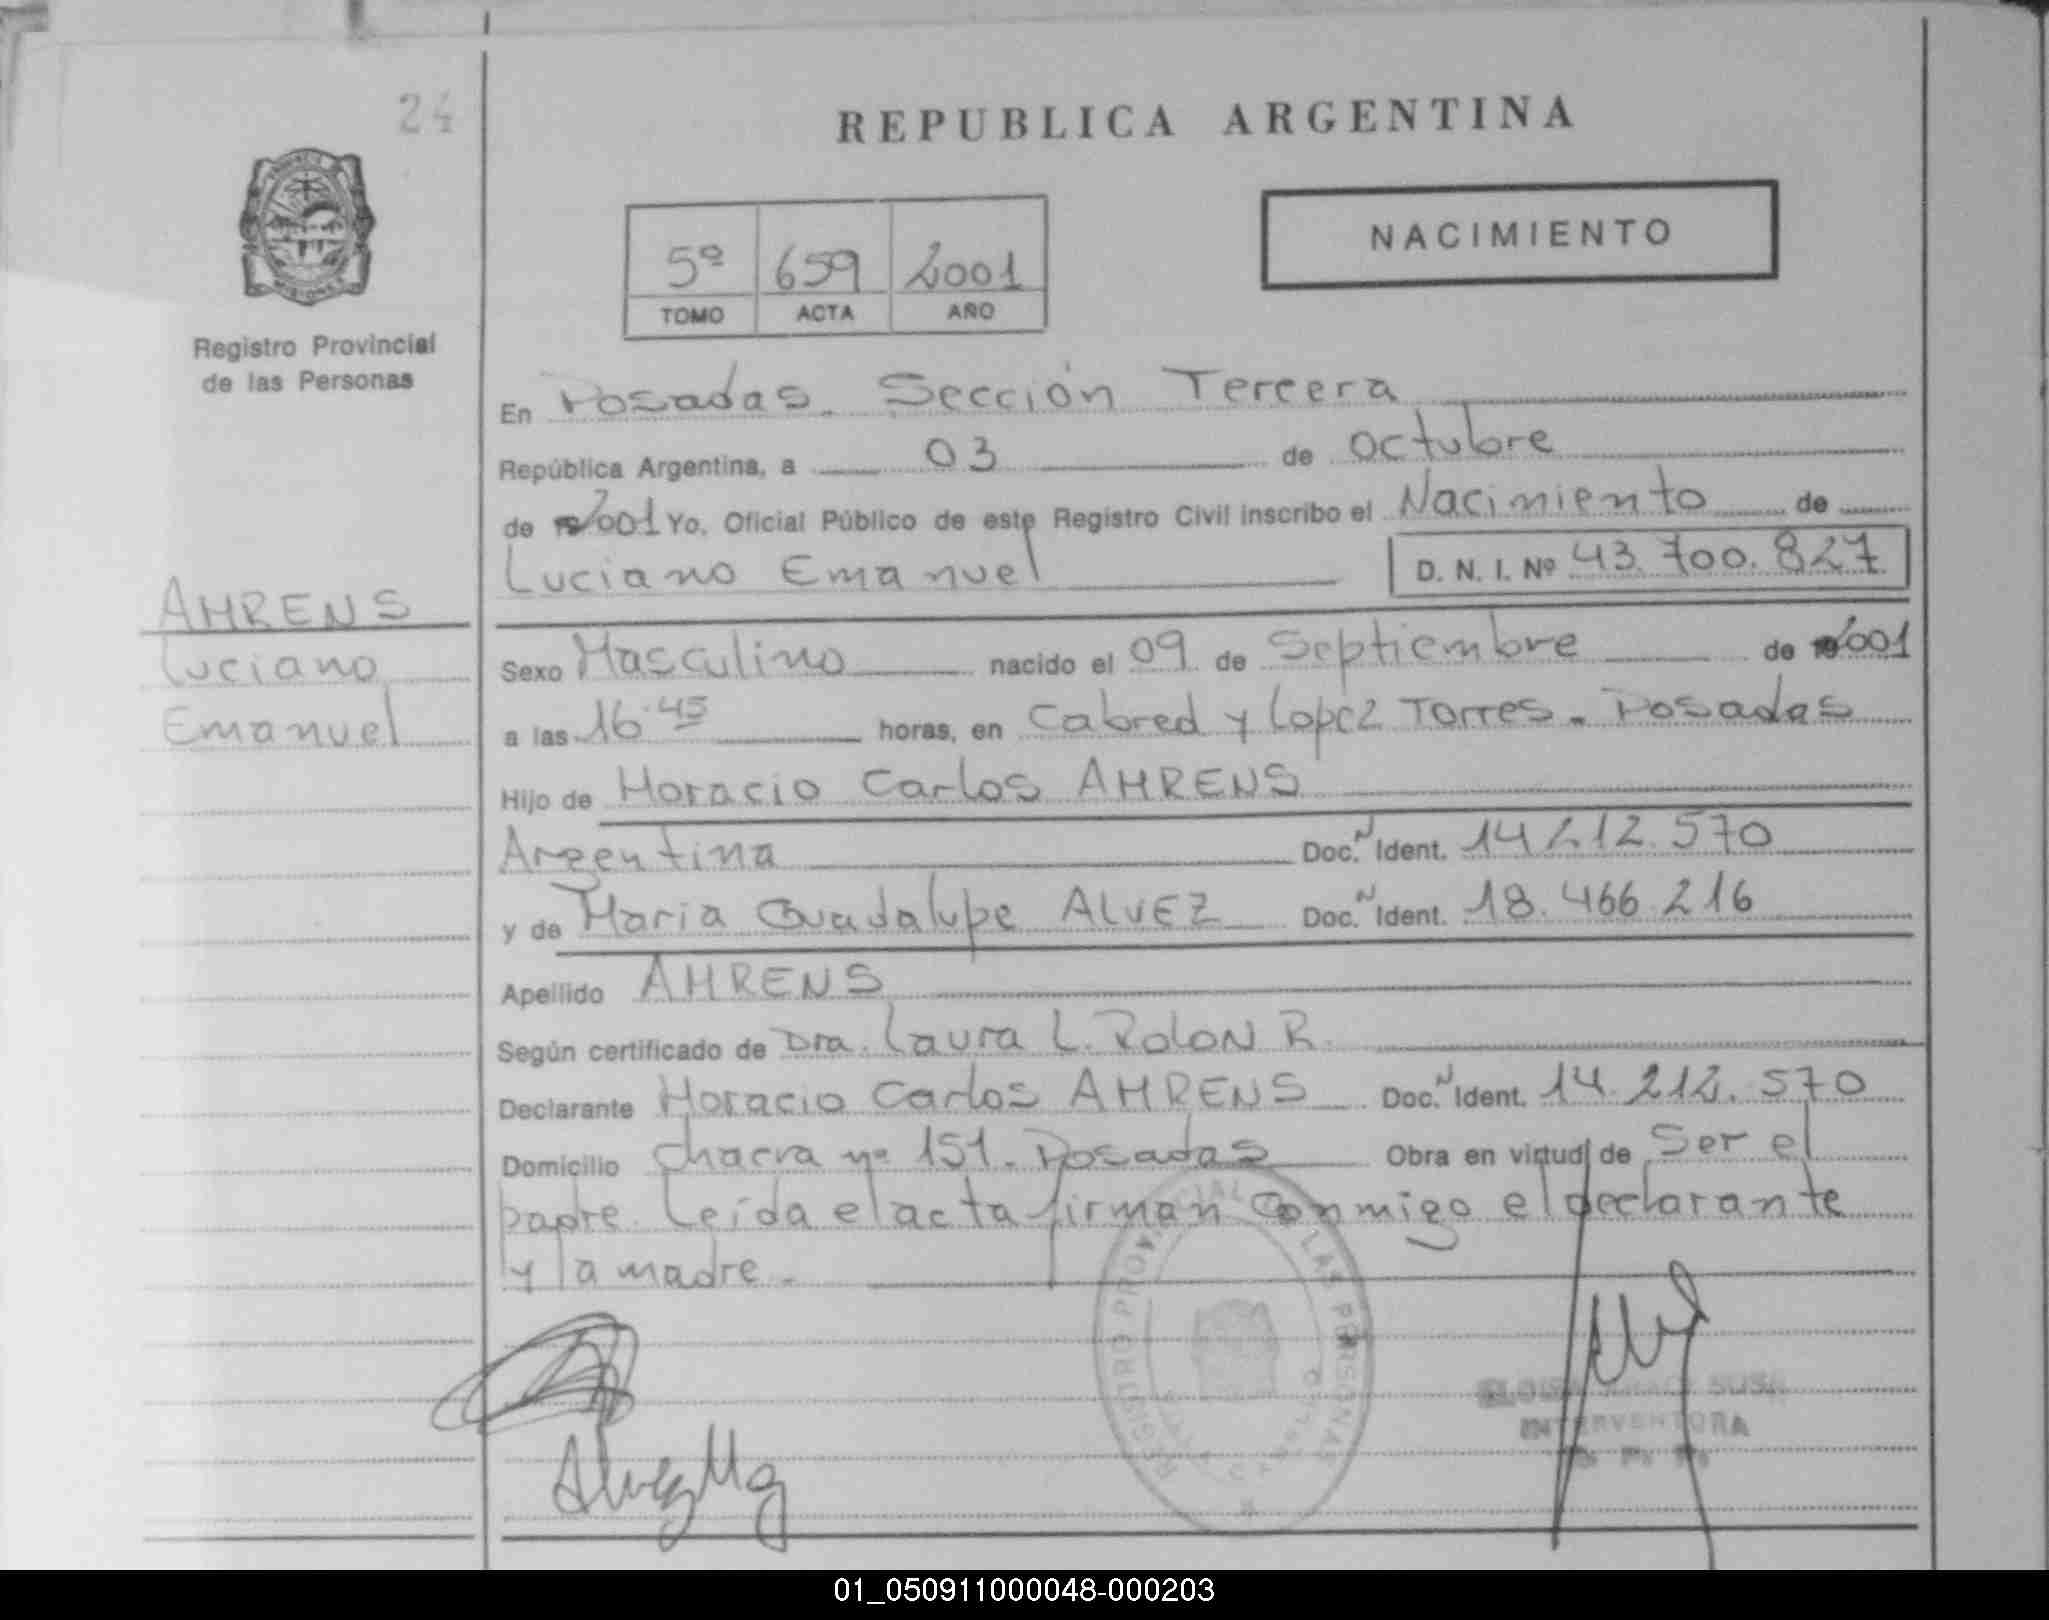 24
REPUBLICA ARGENTINA
NACIMIENTO
5º 659 2001
TOMO ACTA AÑO
Registro Provincial
de las Personas
En Posadas. Sección Tercera
República Argentina, a 03 de octubre
de 2001 Yo, Oficial Público de este Registro Civil inscribo el Nacimiento de
Luciano Emanuel D. N. I. Nº 43.700.827
AHRENS
Luciano
Emanuel
Sexo Masculino nacido el 09 de Septiembre de 2001
a las 16.45 horas, en Cabred y Lopez Torres. Posadas
Hijo de Horacio Carlos AHRENS
Argentina Doc. N Ident. 14.212.570
y de Maria Guadalupe ALVEZ Doc. N Ident. 18.466.216
Apellido AHRENS
Según certificado de Dra. Laura L. Rolon R.
Declarante Horacio Carlos AHRENS Doc. N Ident. 14.212.570
Domicilio Chacra nº 151. Posadas Obra en virtud de Ser el
padre. Leída el acta firman conmigo el declarante
y la madre.
REGISTRO PROVINCIAL LAS PERSONAS
Alvez MG
INTERVENTORA
01_050911000048-000203